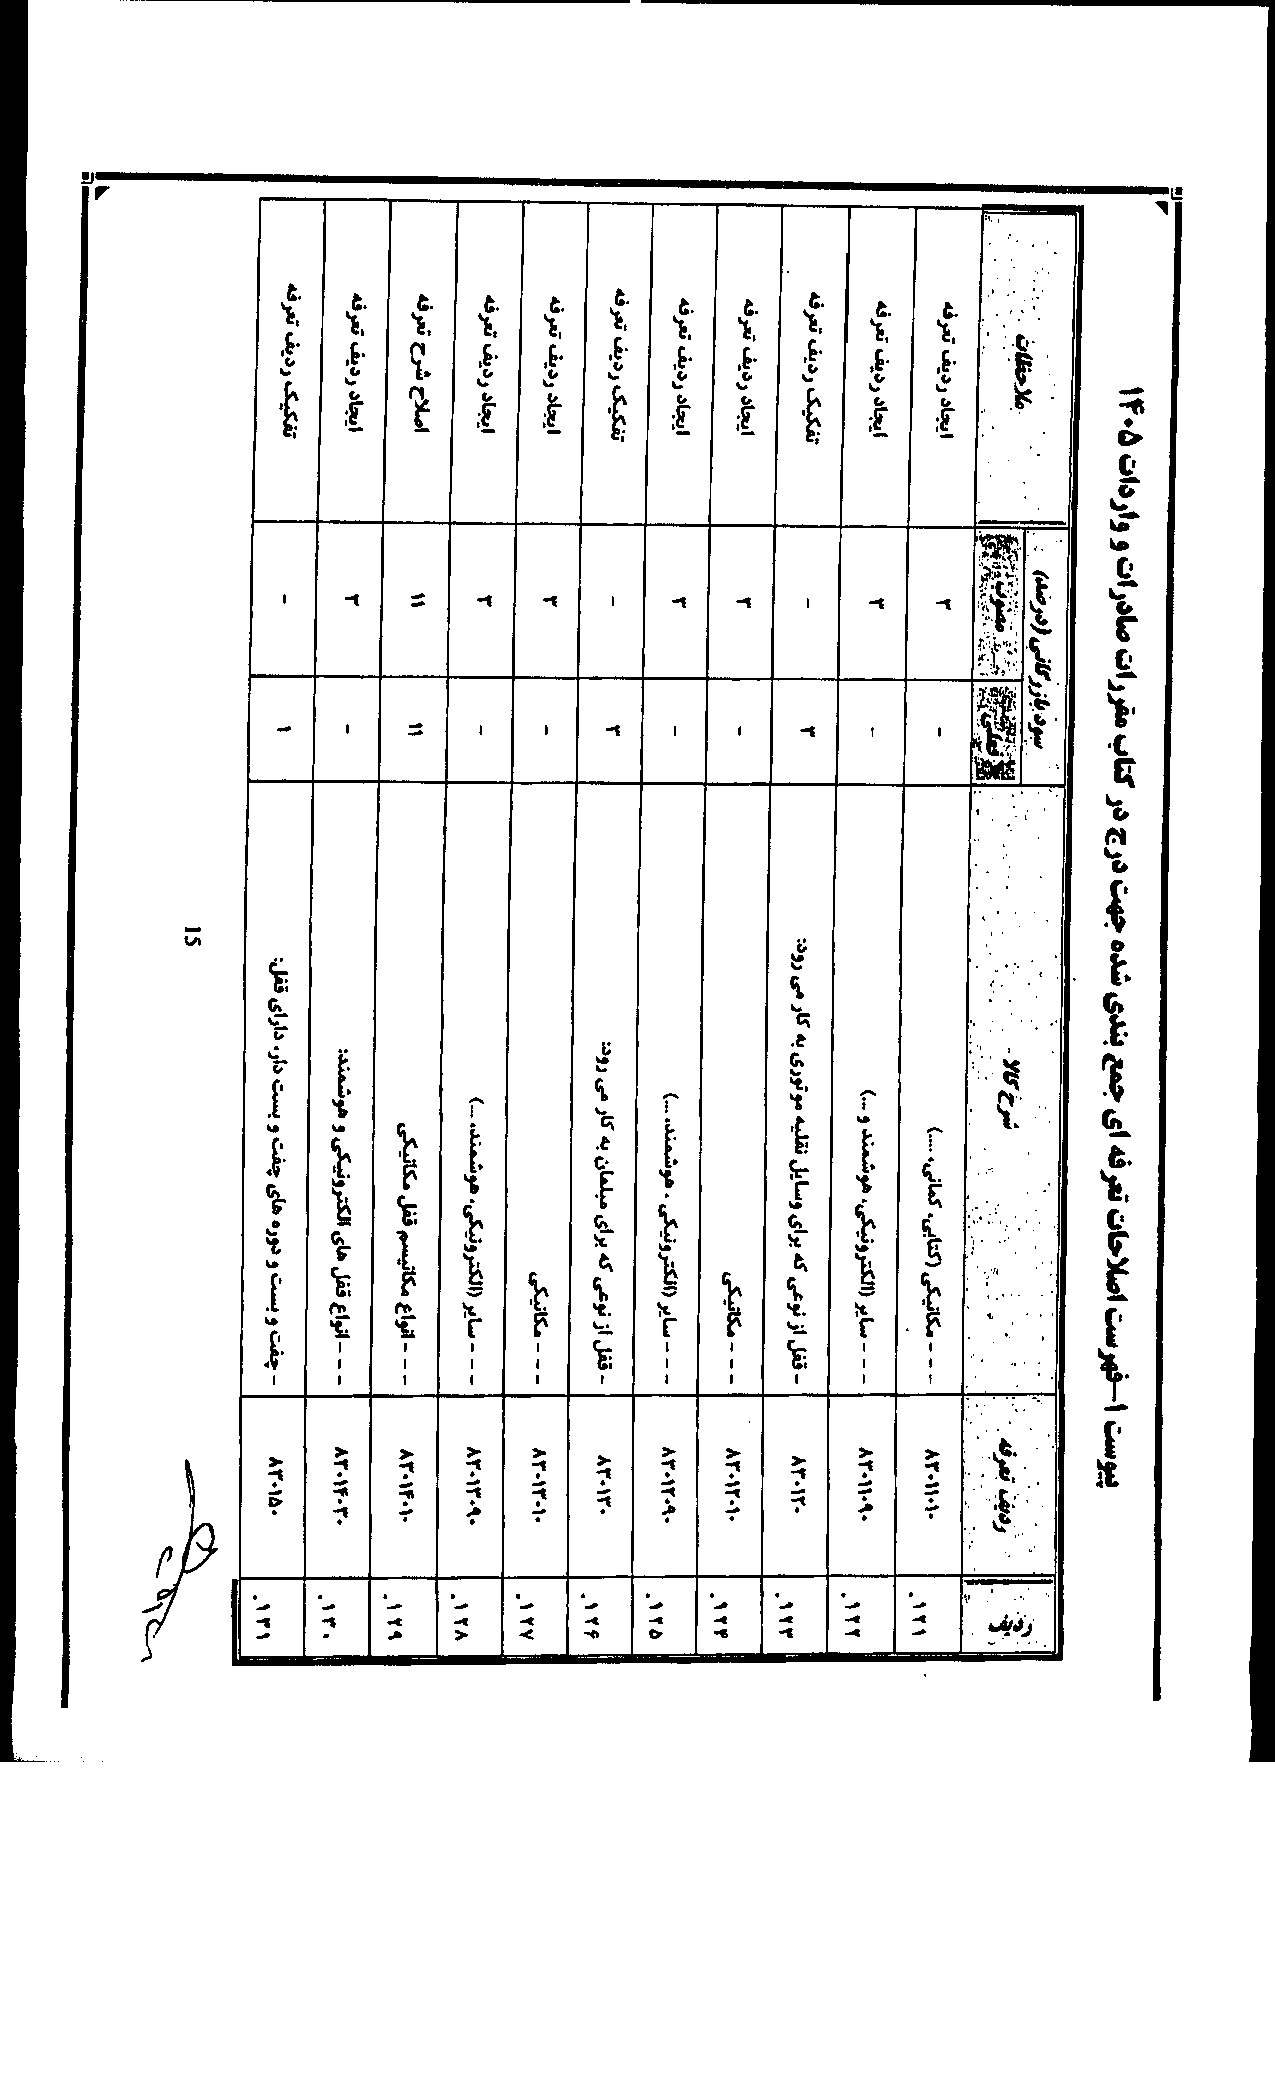 پیوست ۱-فهرست اصلاحات تعرفه ای جمع بندی شده جهت درج در کتاب مقررات صادرات و واردات ۱۴۰۵
ردیف ردیف تعرفه شرح کالا سود بازرگانی (درصد) ملاحظات
فعلی مصوب
۱۲۱. ۸۳۰۱۱۰۱۰ - - - مکانیکی (کتابی، کمانی، ....) - ۳ ایجاد ردیف تعرفه
۱۲۲. ۸۳۰۱۱۰۹۰ - - - سایر (الکترونیکی، هوشمند و ...) - ۳ ایجاد ردیف تعرفه
۱۲۳. ۸۳۰۱۲۰ - قفل از نوعی که برای وسایل نقلیه موتوری به کار می رود: ۳ - تفکیک ردیف تعرفه
۱۲۴. ۸۳۰۱۲۰۱۰ - - - مکانیکی - ۳ ایجاد ردیف تعرفه
۱۲۵. ۸۳۰۱۲۰۹۰ - - - سایر (الکترونیکی، هوشمند، ...) - ۳ ایجاد ردیف تعرفه
۱۲۶. ۸۳۰۱۳۰ - قفل از نوعی که برای مبلمان به کار می رود: ۳ - تفکیک ردیف تعرفه
۱۲۷. ۸۳۰۱۳۰۱۰ - - - مکانیکی - ۳ ایجاد ردیف تعرفه
۱۲۸. ۸۳۰۱۳۰۹۰ - - - سایر (الکترونیکی، هوشمند، ...) - ۳ ایجاد ردیف تعرفه
۱۲۹. ۸۳۰۱۴۰۱۰ - - - انواع مکانیسم قفل مکانیکی ۱۱ ۱۱ اصلاح شرح تعرفه
۱۳۰. ۸۳۰۱۴۰۳۰ - - - انواع قفل های الکترونیکی و هوشمند: - ۳ ایجاد ردیف تعرفه
۱۳۱. ۸۳۰۱۵۰ - چفت و بست و دوره های چفت و بست دار، دارای قفل: ۱ - تفکیک ردیف تعرفه
15